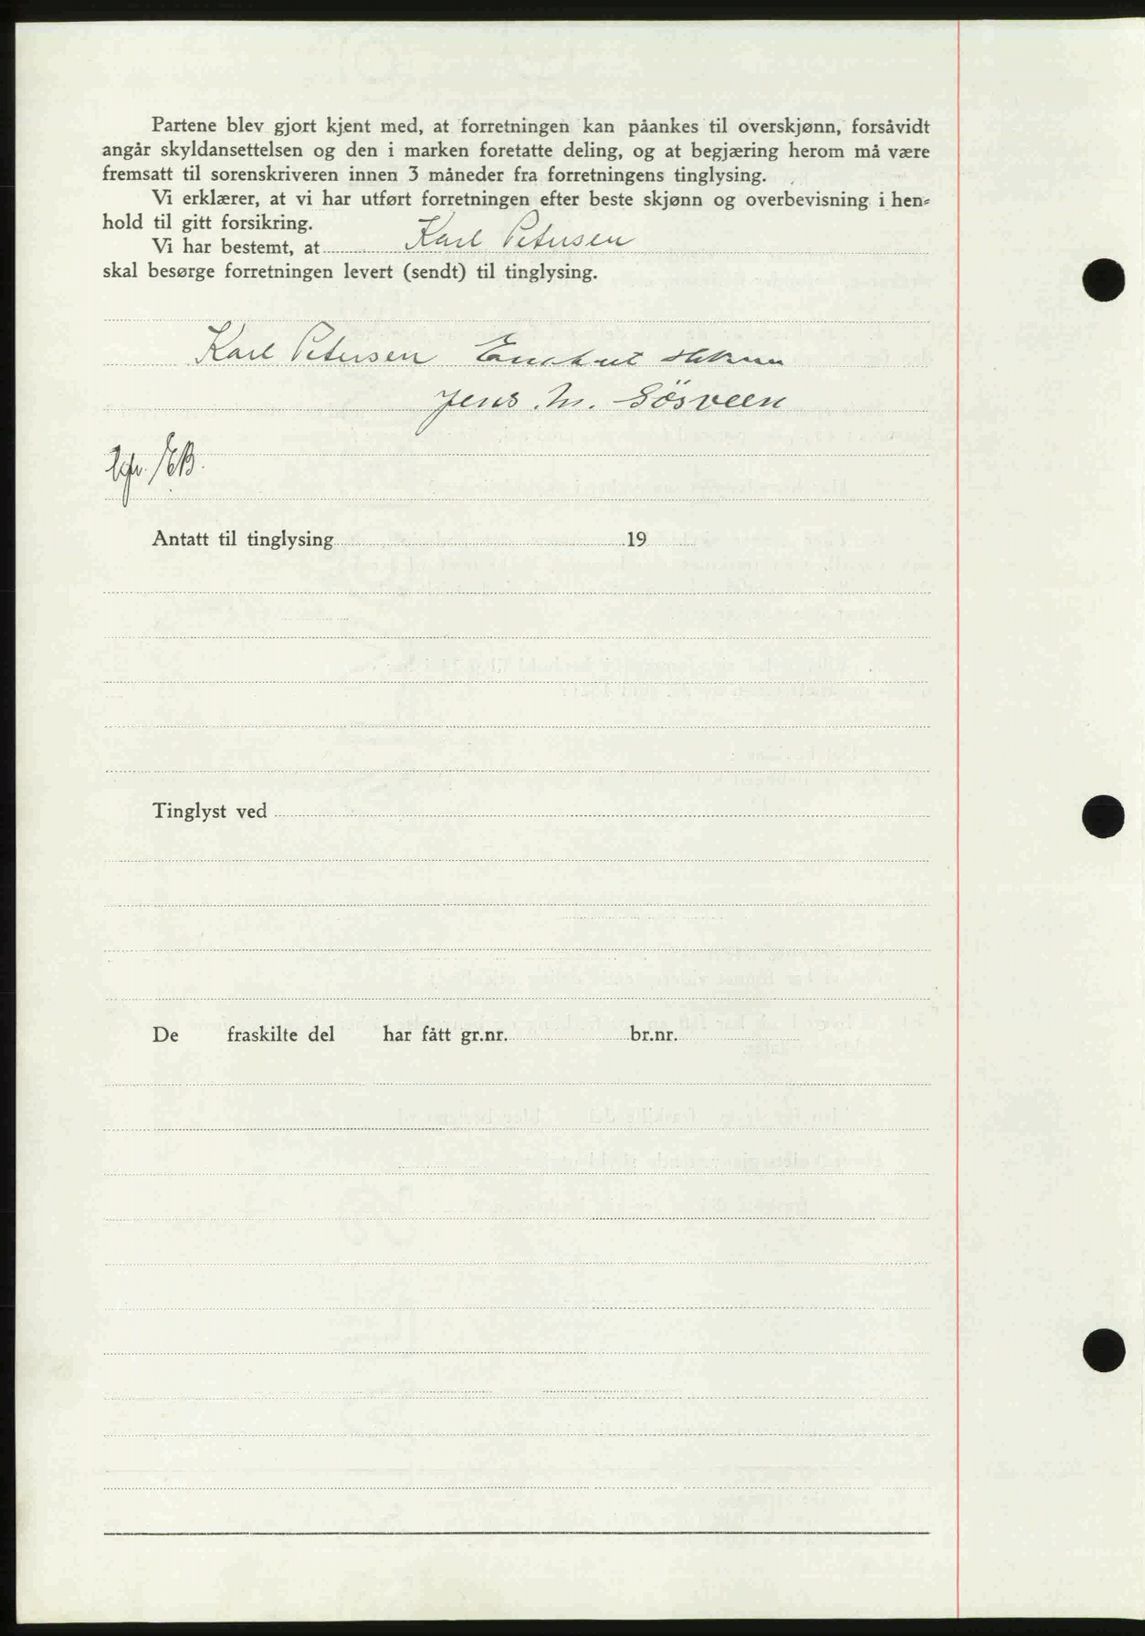 Partene blev gjort kjent med, at forretningen kan påankes til overskjønn, forsåvidt
angår skyldansettelsen og den i marken foretatte deling, og at begjæring herom må være
fremsatt til sorenskriveren innen 3 måneder fra forretningens tinglysing.
Vi erklærer, at vi har utført forretningen efter beste skjønn og overbevisning i hen-
hold til gitt forsikring.
Vi har bestemt, at Karl Petersen
skal besørge forretningen levert (sendt) til tinglysing.
Karl Petersen
Jens. M. Sösveen
EB.
Antatt til tinglysing 19
Tinglyst ved
De fraskilte del har fått gr.nr. br.nr.